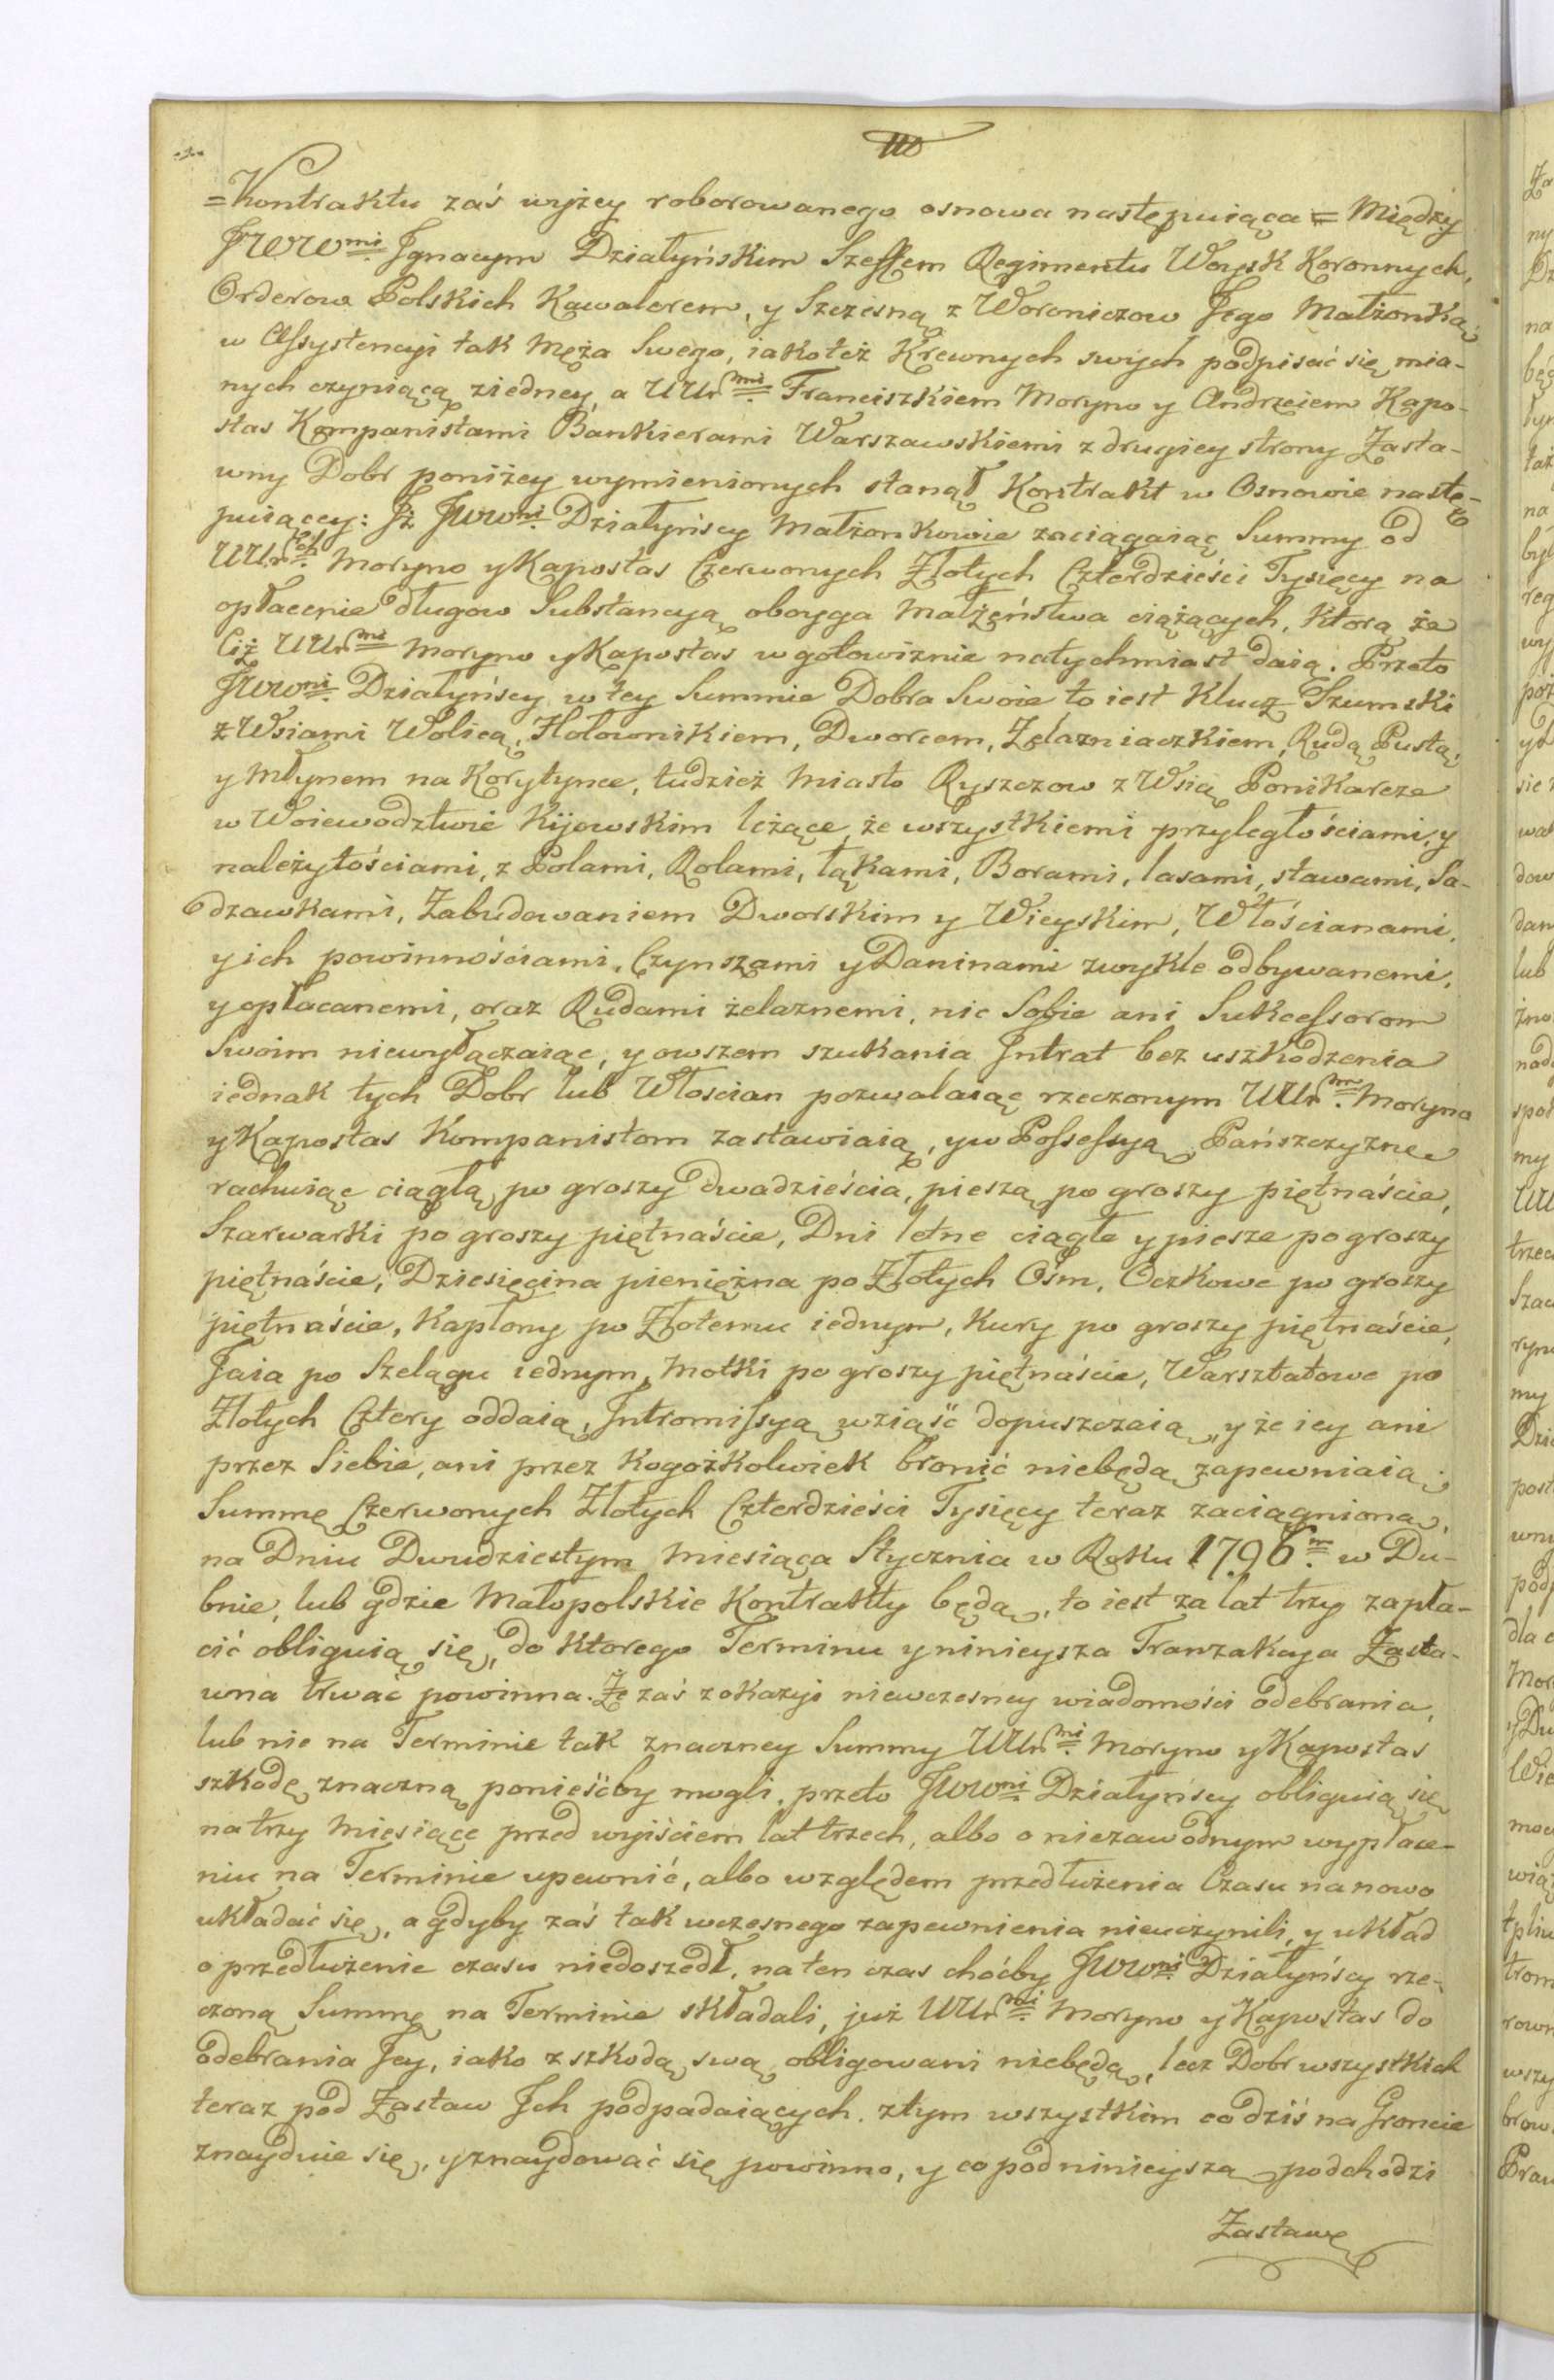 =Kontraktu zaś wyżey roborowanego osnowa następuiąca = Między
JWWmi. Ignacym Działyńskim Szeffem Regimentu Woysk Koronnych,
Orderow Polskich Kawalerem, y Szczęsną z Woroniczow Jego Małżonką
w Assystencyi tak Męża Swego, iakoteż Krewnych swych podpisać się mia-
nych czyniącą ziedney, a UUr.mi Franciszkiem Moryno y Andrzeiem Kapo-
stas Kompanistami Bankierami Warszawskiemi z drugiey strony Zasta-
wny Dobr poniżey wymienionych stanął Kontrakt w Osnowie nastę-
puiącey: Iż JWWni. Działyńscy Małżonkowie zaciągaiąc Summy od
UUr. Moryno y Kapostas Czerwonych Złotych Czterdzieści Tysięcy na
opłacenie długow Substancyą oboyga Małżeństwa ciążących, ktorą że
Ciż UUr.mi Moryno y Kapostas w gotowiznie natychmiast daią. Przeto
JWWni. Działyńscy w tey Summie Dobra Swoie to iest Klucz Szumski
z Wsiami Wolicą, Hołownikiem, Dworcem, Żelazniaczkiem, Rudą Pustą,
y Młynem na Korytynce, tudzież Miasto Ryszczow z Wsią Ponikarcze
w Woiewodztwie Kijowskim leżące, ze wszystkiemi przyległościami, y
należytościami, z Polami, Rolami, łąkami, Borami, lasami, stawami, Sa-
dzawkami, Zabudowaniem Dworskim y Wieyskim, Włościanami,
y ich powinnościami, Czynszami y Daninami zwykle odbywanemi,
y opłacanemi, oraz Rudami żelaznemi, nic Sobie ani Sukcessorom
Swoim niewyłączaiąc, y owszem szukania Intrat bez uszkodzenia
iednak tych Dobr lub Włoscian pozwalaiąc rzeczonym UUr.m Moryno
y Kapostas Kompanistom zastawiaią, y w Possessyą, Pańszczyznę
rachuiąc ciągłą po groszy dwadzieścia, pieszą po groszy piętnaście,
Szarwarki po groszy piętnaście, Dni letne ciągłe y piesze po groszy
piętnaście, Dziesięcina pieniężna po Złotych Ośm, Oczkowe po groszy
piętnaście, Kapłony po Złotemu iednym, Kury po groszy piętnaście,
Jaia po Szelągu iednym, Motki po groszy piętnaście, Warsztatowe po
Złotych Cztery oddaią, Intromissyą wziąść dopuszczaią, y że iey ani
przez Siebie, ani przez kogożkolwiek bronić niebędą zapewniaią;
Summę Czerwonych Złotych Czterdzieści Tysięcy teraz zaciągnioną,
na Dniu Dwudziestym Miesiąca Stycznia w Roku 1796.m w Du-
bnie, lub gdzie Małopolskie Kontrakty będą, to iest za lat trzy zapła-
cić obliguią się, do ktorego Terminu y ninieysza Tranzakcya Zasta-
wna trwać powinna. Że zaś z okazyi niewczesney wiadomości odebrania,
lub nie na Terminie tak znaczney Summy UUr.mi Moryno y Kapostas
szkodę znaczną ponieśćby mogli, przeto JWWni. Działyńscy obliguią się
na trzy Miesiące przed wyiściem lat trzech, albo o niezawodnym wypłace-
niu na Terminie upewnić, albo względem przedłużenia Czasu na nowo
układać się, a gdyby zaś tak wczesnego zapewnienia nieuczynili, y układ
o przedłużenie czasu niedoszedł, na ten czas choćby JWWni. Działyńscy rze-
czoną Summę na Terminie składali, już UUr.mi Moryno y Kapostas do
odebrania Jey, iako z szkodą swą obligowani niebędą, lecz Dobr wszystkich
teraz pod Zastaw Ich podpadaiących, z tym wszystkim co dziś na Groncie
znayduie się, y znaydować się powinno, y co pod ninieyszą podchodzi
Zastawę